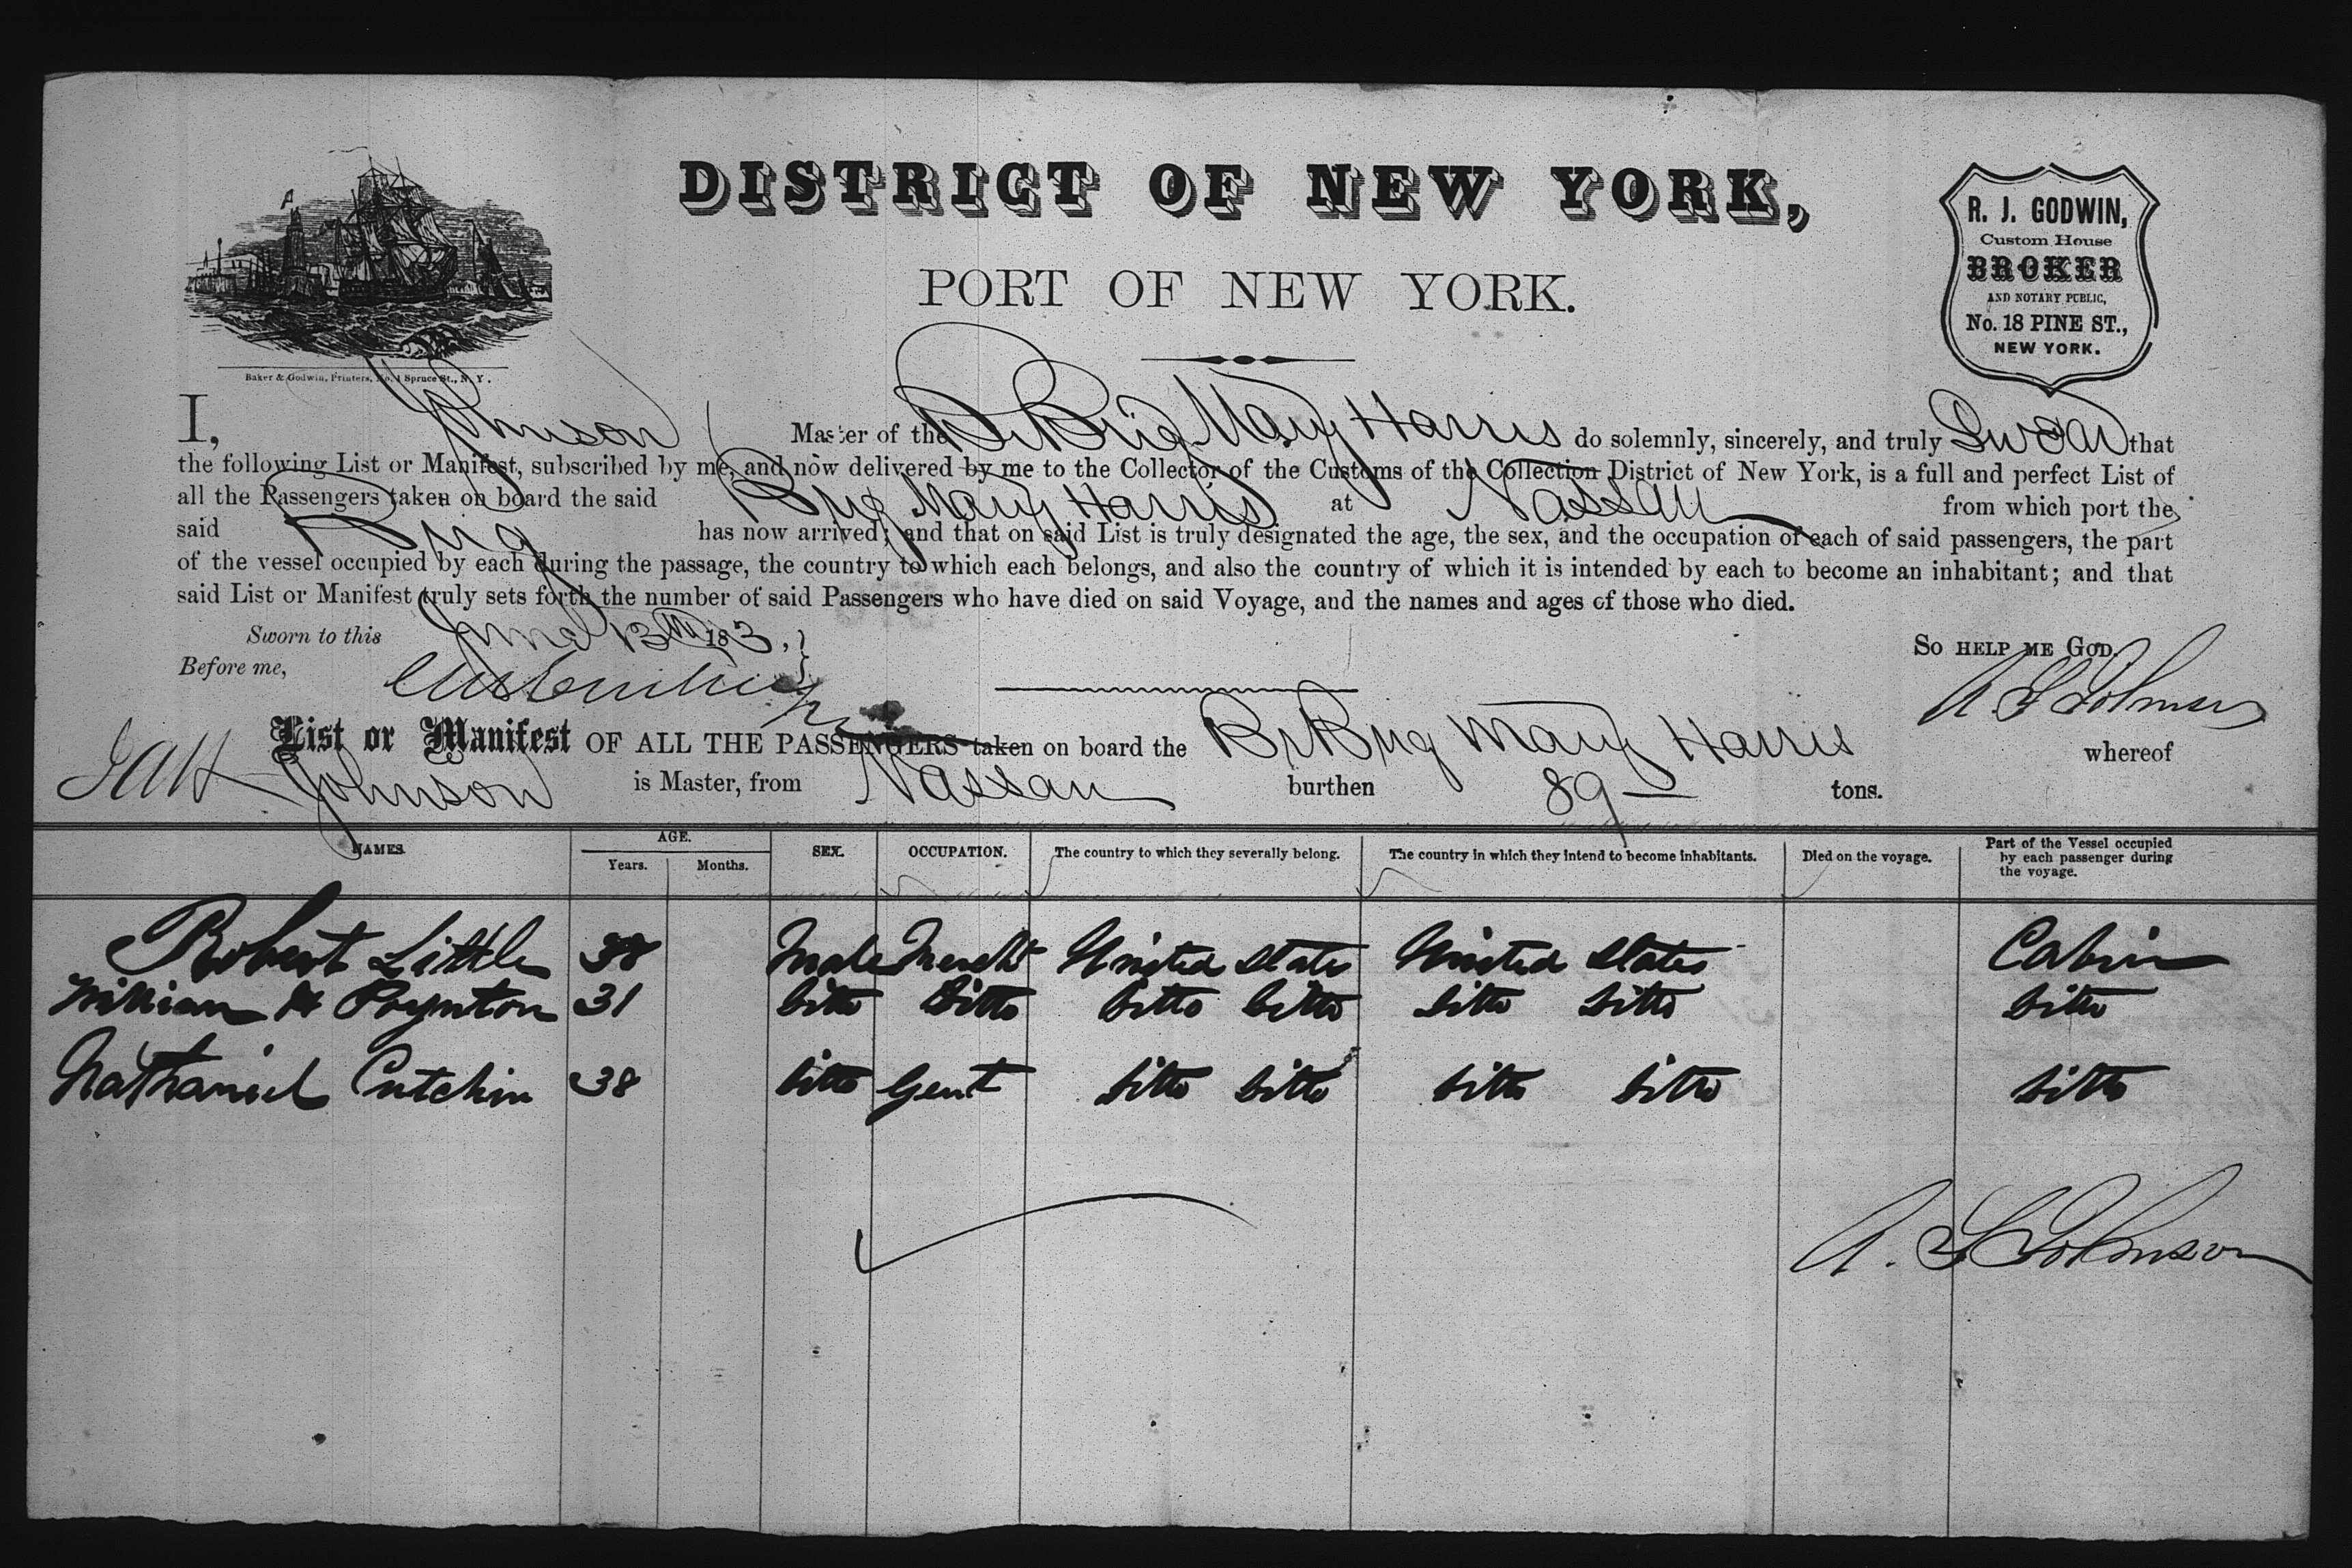 DISTRICT OF NEW YORK,
PORT OF NEW YORK.
R. J. GODWIN,
Custom House
BROKER
AND NOTARY PUBLIC,
No. 18 PINE ST.,
NEW YORK.
Baker & Godwin, Printers, No. 1 Spruce St., N. Y.
I, Johnson Master of the Br Brig Mary Harris do solemnly, sincerely, and truly Swear that
the following List or Manifest, subscribed by me, and now delivered by me to the Collector of the Customs of the Collection District of New York, is a full and perfect List of
all the Passengers taken on board the said Brig Mary Harris at Nassau from which port the
said Brig has now arrived; and that on said List is truly designated the age, the sex, and the occupation of each of said passengers, the part
of the vessel occupied by each during the passage, the country to which each belongs, and also the country of which it is intended by each to become an inhabitant; and that
said List or Manifest truly sets forth the number of said Passengers who have died on said Voyage, and the names and ages of those who died.
Sworn to this June 13th 18 3,
So HELP ME GOD.
Before me,
A Johnson
List or Manifest OF ALL THE PASSENGERS taken on board the Br Brig Mary Harris whereof
Johnson is Master, from Nassau burthen 89 tons.
NAMES AGE. Years. Months. SEX. OCCUPATION. The country to which they severally belong. The country in which they intend to become inhabitants. Died on the voyage. Part of the Vessel occupied by each passenger during the voyage.
Robert Little 38 Male Mercht United States United States Cabin
William H Poynton 31 ditto ditto ditto ditto ditto ditto ditto
Nathaniel Cutchin 38 ditto Gent ditto ditto ditto ditto ditto
A. Johnson